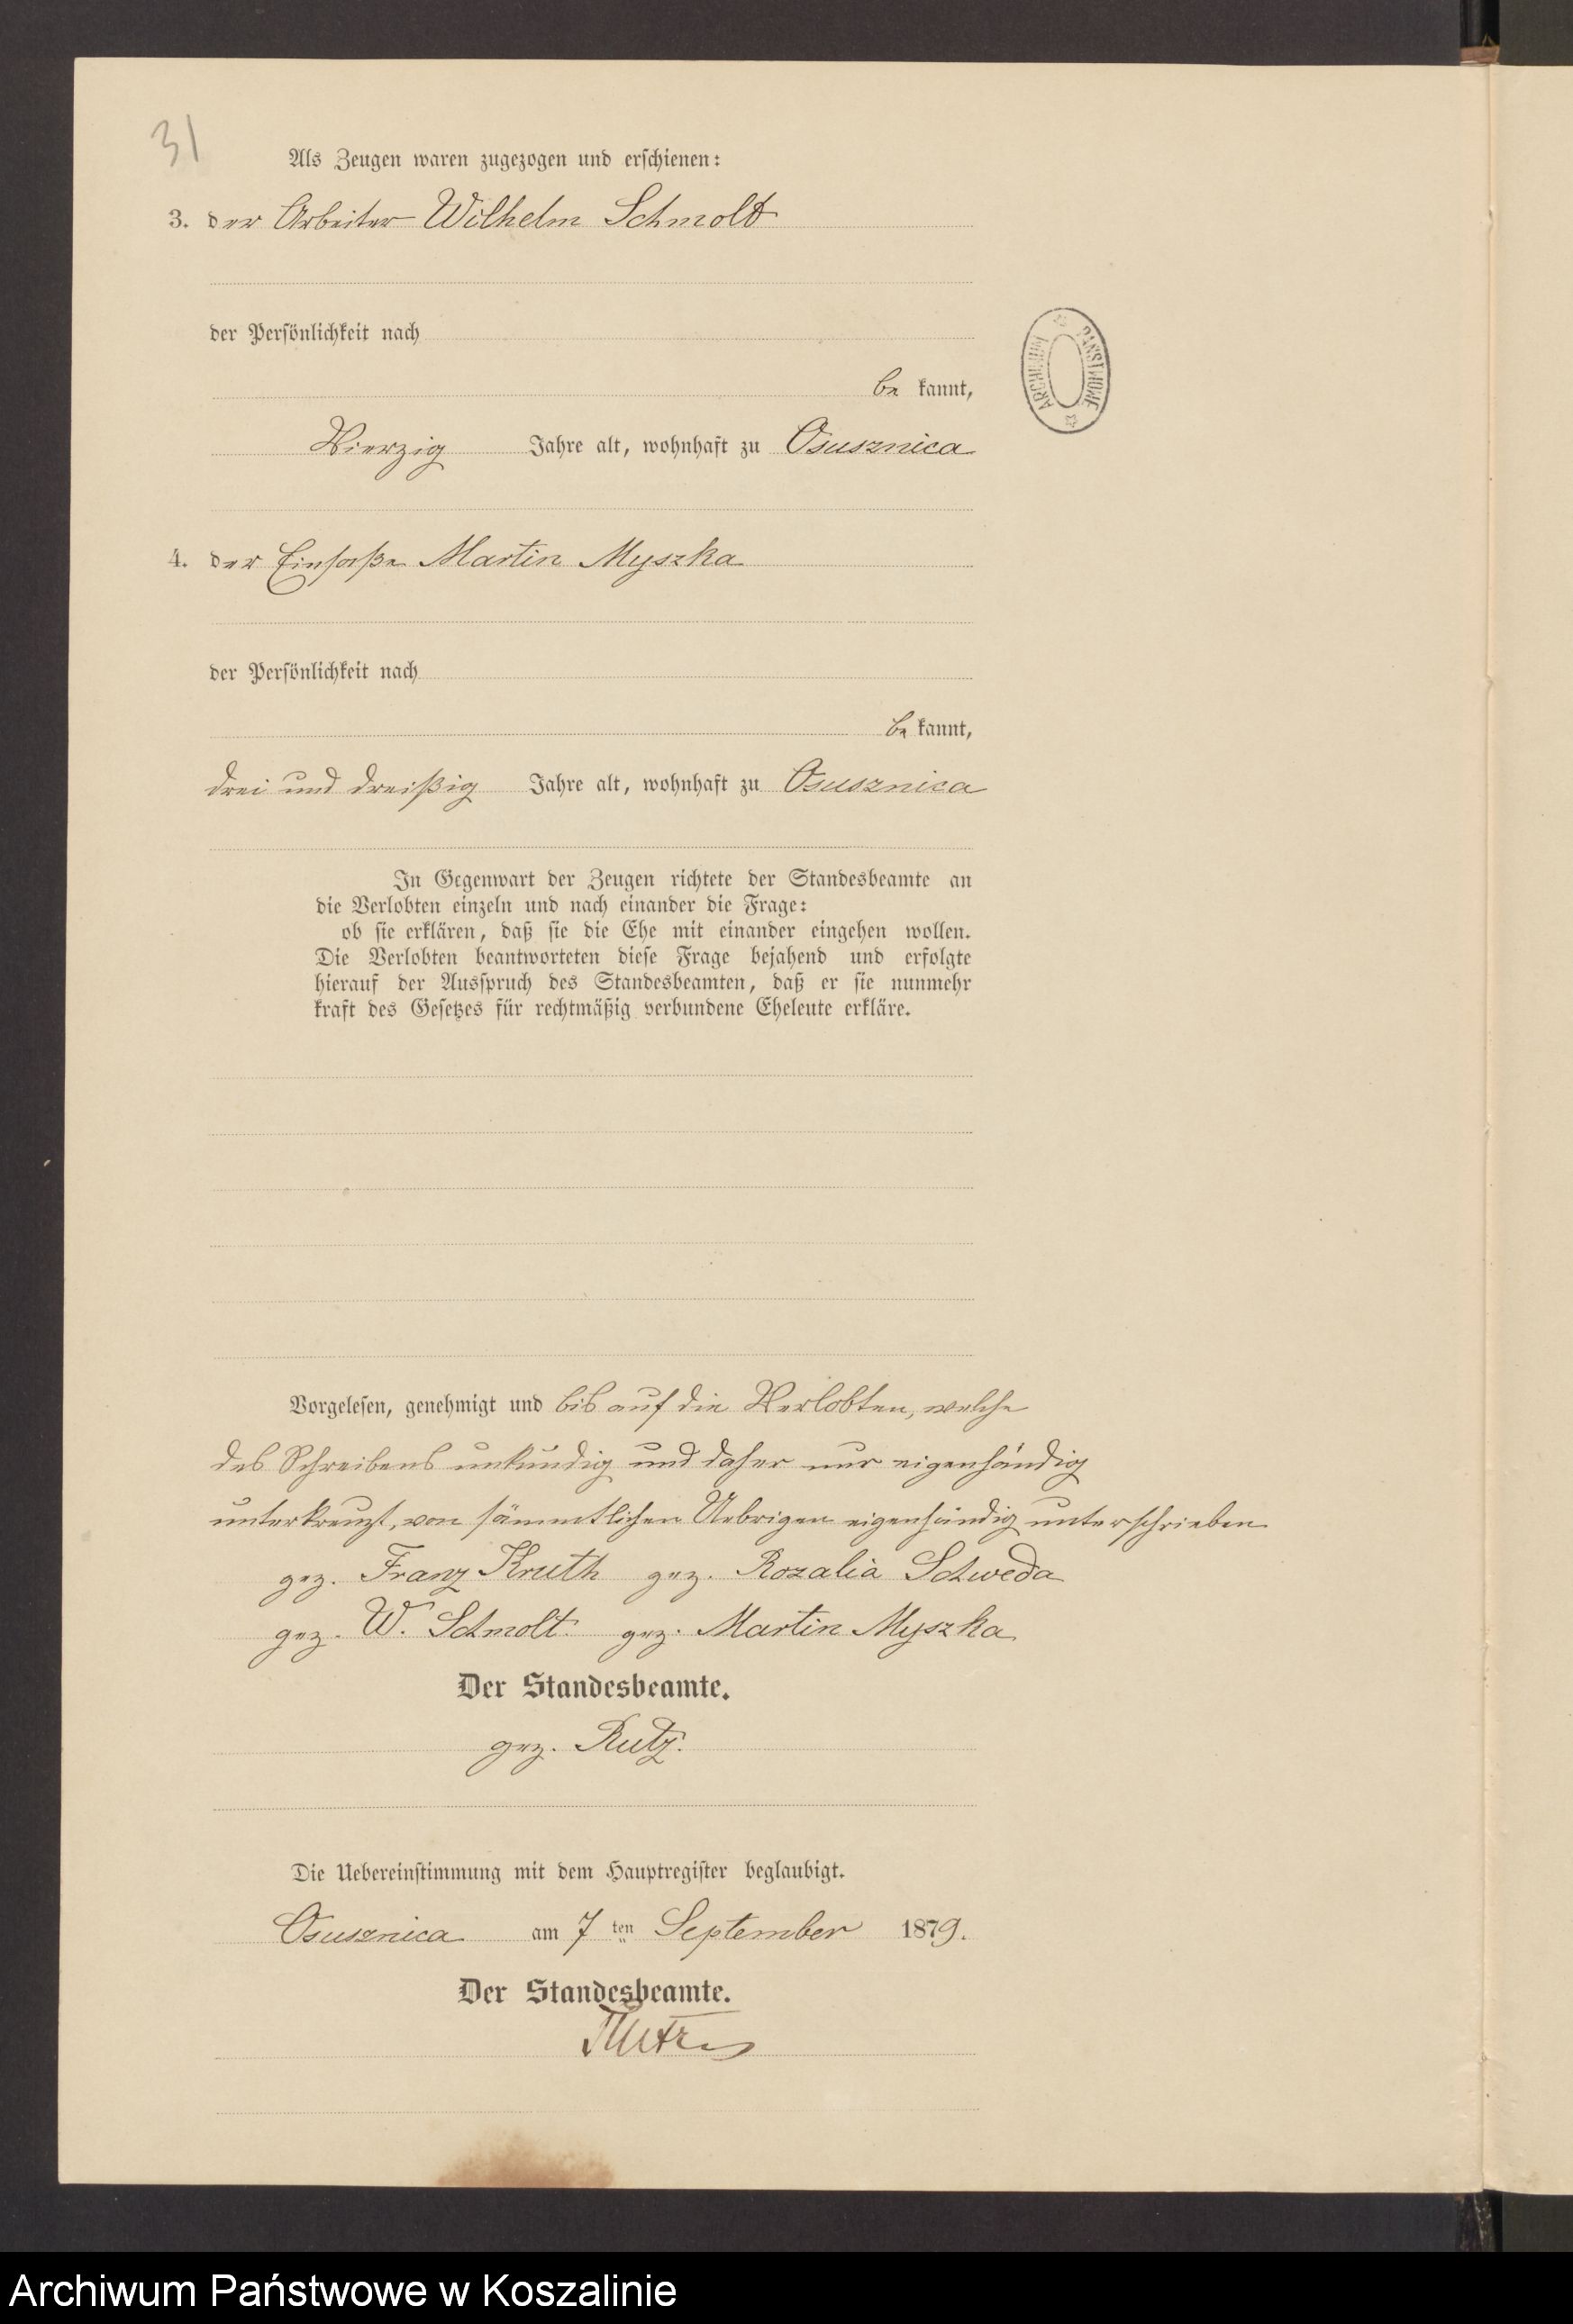 31
Als Zeugen waren zugezogen und erschienen:
3. der Arbeiter Wilhelm Schmolt
der Persönlichkeit nach
be kannt,
Vierzig Jahre alt, wohnhaft zu Osusznica
4. der Einsaße Martin Myszka
der Persönlichkeit nach
be kannt,
drei und dreißig Jahre alt, wohnhaft zu Osusznica
In Gegenwart der Zeugen richtete der Standesbeamte an
die Verlobten einzeln und nach einander die Frage:
ob sie erklären, daß sie die Ehe mit einander eingehen wollen.
Die Verlobten beantworteten diese Frage bejahend und erfolgte
hierauf der Ausspruch des Standesbeamten, daß er sie nunmehr
kraft des Gesetzes für rechtmäßig verbundene Eheleute erkläre.
Vorgelesen, genehmigt und bis auf die Verlobten, welche
des Schreibens unkundig und daher nur eigenhändig
unterkreuzt, von sämmtlichen Uebrigen eigenhändig unterschrieben
gez. Franz Kruth gez. Rozalia Schweda
gez. W. Schmolt gez. Martin Myszka
Der Standesbeamte.
gez. Rutz.
Die Uebereinstimmung mit dem Hauptregister beglaubigt.
Osusznica am 7 ten September 1879.
Der Standesbeamte.
ARCHIWUM PAŃSTWOWE
Archiwum Państwowe w Koszalinie